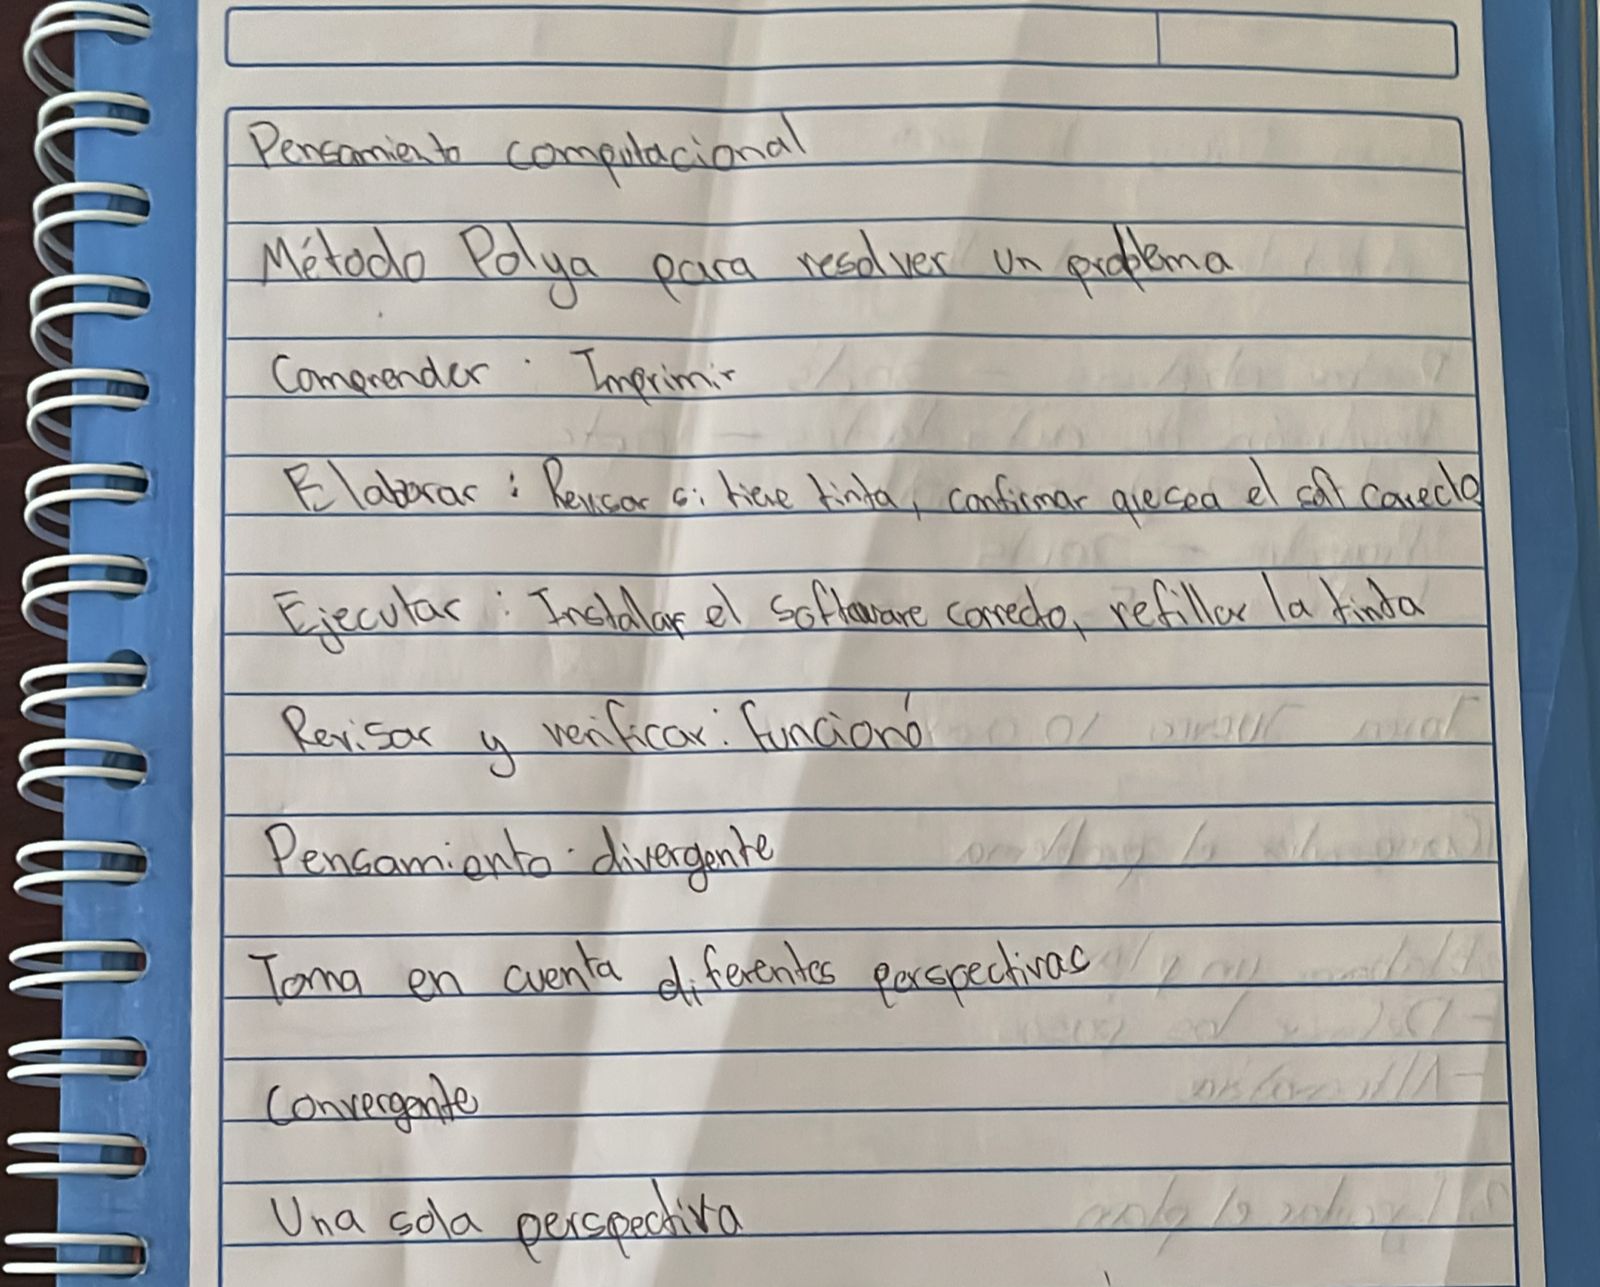 Pensamiento computacional
Método Polya para resolver un problema
Comprender: Imprimir
Elaborar: Revisar si tiene tinta, confirmar que sea el soft correcto
Ejecutar: Instalar el software correcto, refillar la tinta
Revisar y verificar: funcionó
Pensamiento divergente
Toma en cuenta diferentes perspectivas
Convergente
Una sola perspectiva